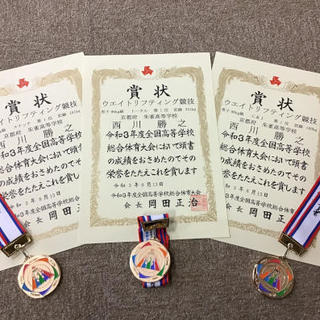 賞状
ウエイトリフティング競技
京都府 朱雀高等学校
西川勝之
令和3年度全国高等学校
総合体育大会において頭書
の成績をおさめたのでその
栄誉をたたえこれを賞します
賞状
ウエイトリフティング競技
トータル 第1位
京都府 朱雀高等学校
西川勝之
令和3年度全国高等学校
総合体育大会において頭書
の成績をおさめたのでその
栄誉をたたえこれを賞します
令和3年8月13日
令和3年度全国高等学校総合体育大会
会長 岡田正治
賞状
ウエイトリフティング競技
京都府 朱雀高等学校
西川勝之
令和3年度全国高等学校
総合体育大会において頭書
の成績をおさめたのでその
栄誉をたたえこれを賞します